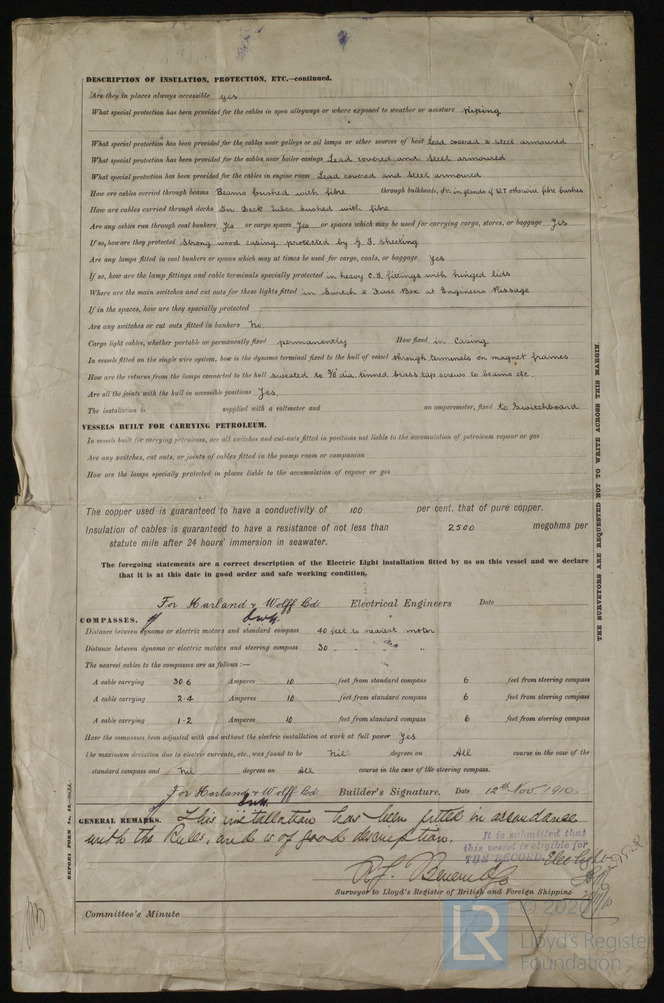 DESCRIPTION OF INSULATION, PROTECTION, ETC.—continued.
Are they in places always accessible yes
What special protection has been provided for the cables in open alleyways or where exposed to weather or moisture piping
What special protection has been provided for the cables near galleys or oil lamps or other sources of heat Lead covered & steel armoured
What special protection has been provided for the cables near boiler casings Lead covered and steel armoured
What special protection has been provided for the cables in engine room Lead covered and steel armoured
How are cables carried through beams Beams bushed with fibre through bulkheads, &c. in glands if W.T otherwise fibre bushes
How are cables carried through decks In Deck Tubes bushed with fibre
Are any cables run through coal bunkers Yes or cargo spaces Yes or spaces which may be used for carrying cargo, stores, or baggage Yes
If so, how are they protected Strong wood casing protected by G. I. sheeting
Are any lamps fitted in coal bunkers or spaces which may at times be used for cargo, coals, or baggage Yes
If so, how are the lamp fittings and cable terminals specially protected in heavy C.I. fittings with hinged lids
Where are the main switches and cut outs for these lights fitted in Switch & Fuse Box at Engineers Passage
If in the spaces, how are they specially protected
Are any switches or cut outs fitted in bunkers No.
Cargo light cables, whether portable or permanently fixed permanently How fixed in Casing
In vessels fitted on the single wire system, how is the dynamo terminal fixed to the hull of vessel through terminals on magnet frames
How are the returns from the lamps connected to the hull sweated to 3/8" dia. tinned brass tap screws to beams etc.
Are all the joints with the hull in accessible positions Yes.
The installation is supplied with a voltmeter and an amperemeter, fixed to Switchboard
VESSELS BUILT FOR CARRYING PETROLEUM.
In vessels built for carrying petroleum, are all switches and cut-outs fitted in positions not liable to the accumulation of petroleum vapour or gas
Are any switches, cut outs, or joints of cables fitted in the pump room or companion
How are the lamps specially protected in places liable to the accumulation of vapour or gas
The copper used is guaranteed to have a conductivity of 100 per cent. that of pure copper.
Insulation of cables is guaranteed to have a resistance of not less than 2500 megohms per
statute mile after 24 hours' immersion in seawater.
The foregoing statements are a correct description of the Electric Light installation fitted by us on this vessel and we declare
that it is at this date in good order and safe working condition.
For Harland & Wolff Ld. Electrical Engineers Date
COMPASSES.
Distance between dynamo or electric motors and standard compass 40 feet to nearest motor
Distance between dynamo or electric motors and steering compass 30 " "
The nearest cables to the compasses are as follows:—
A cable carrying 30.6 Amperes 10 feet from standard compass 6 feet from steering compass
A cable carrying 2.4 Amperes 10 feet from standard compass 6 feet from steering compass
A cable carrying 1.2 Amperes 10 feet from standard compass 6 feet from steering compass
Have the compasses been adjusted with and without the electric installation at work at full power Yes
The maximum deviation due to electric currents, etc., was found to be Nil degrees on All course in the case of the
standard compass and Nil degrees on All course in the case of the steering compass.
For Harland & Wolff Ld. Builder's Signature. Date 12th Nov. 1910.
GENERAL REMARKS. This installation has been fitted in accordance
with the Rules, and is of good description.
It is submitted that
this vessel is eligible for
THE RECORD. Elec light
Surveyor to Lloyd's Register of British and Foreign Shipping
Committee's Minute
THE SURVEYORS ARE REQUESTED NOT TO WRITE ACROSS THIS MARGIN.
LR
© 2020
Lloyd's Register
Foundation